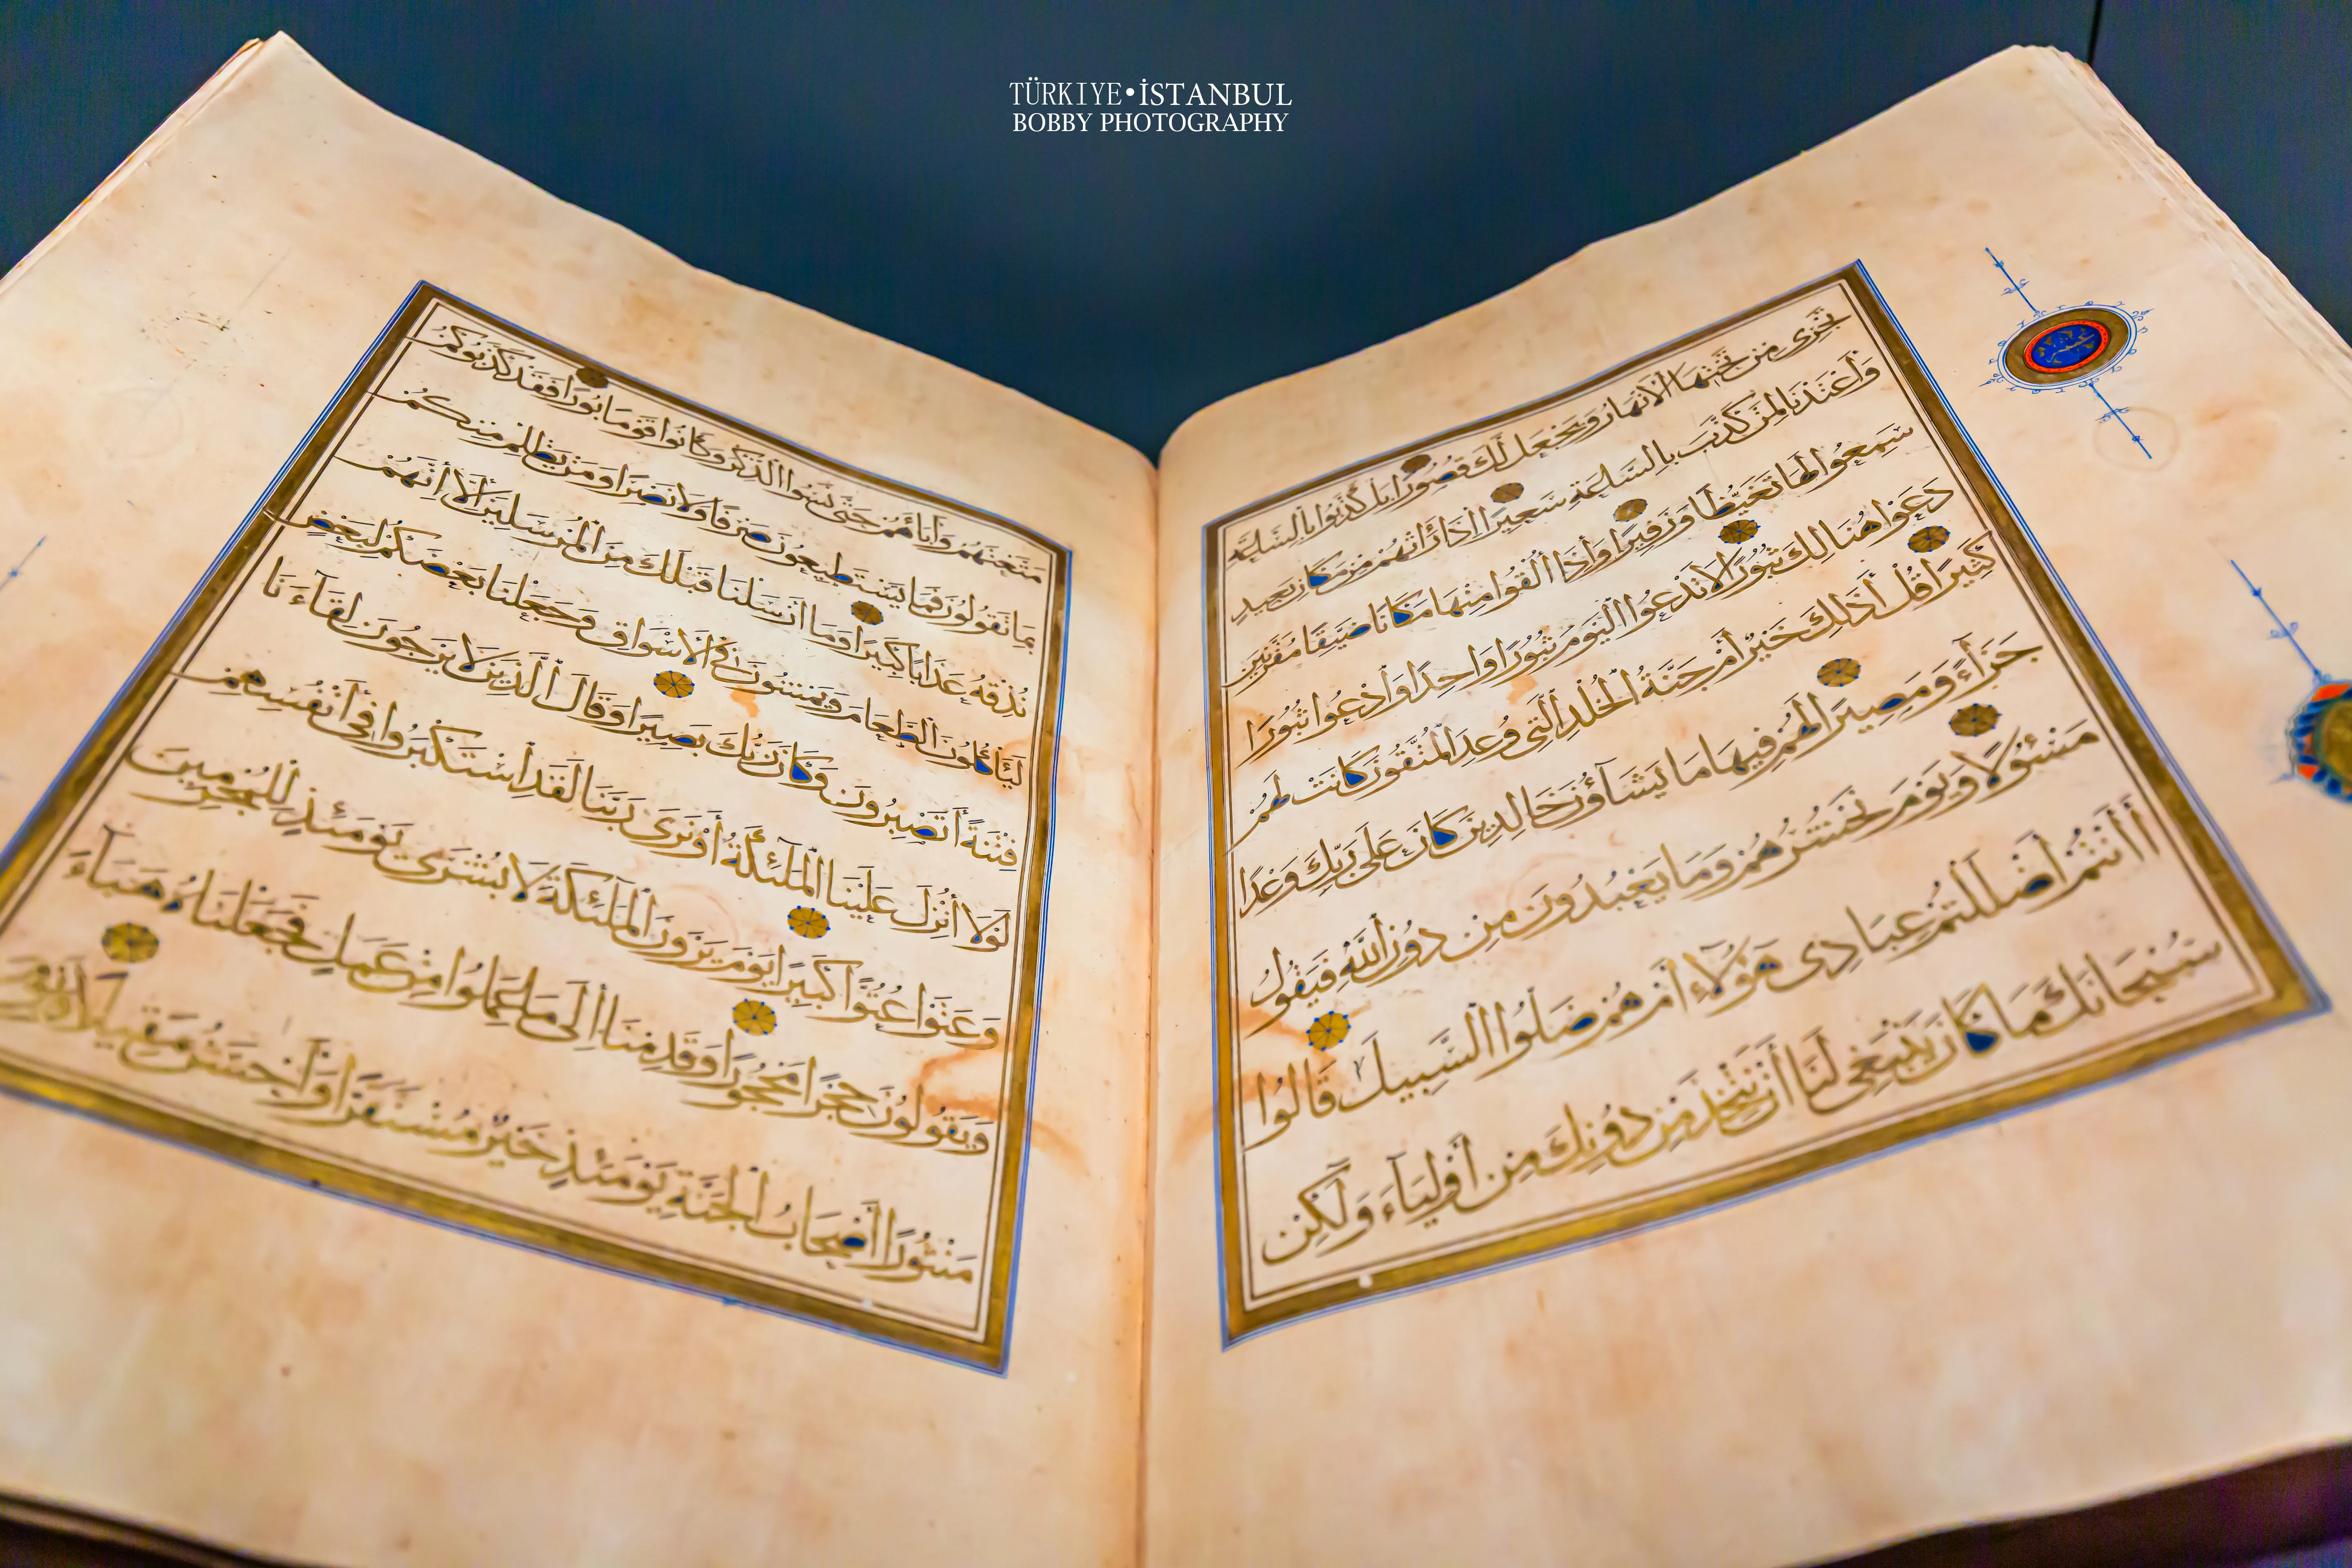 TÜRKIYE•İSTANBUL
BOBBY PHOTOGRAPHY
تَجْرِى مِنْ تَحْتِهَا الْأَنْهَارُ وَيَجْعَلْ لَكَ قُصُورًا بَلْ كَذَّبُوا بِالسَّاعَةِ
وَأَعْتَدْنَا لِمَنْ كَذَّبَ بِالسَّاعَةِ سَعِيرًا إِذَا رَأَتْهُمْ مِنْ مَكَانٍ بَعِيدٍ
سَمِعُوا لَهَا تَغَيُّظًا وَزَفِيرًا وَإِذَا أُلْقُوا مِنْهَا مَكَانًا ضَيِّقًا مُقَرَّنِينَ
دَعَوْا هُنَالِكَ ثُبُورًا لَا تَدْعُوا الْيَوْمَ ثُبُورًا وَاحِدًا وَادْعُوا ثُبُورًا
كَثِيرًا قُلْ أَذَلِكَ خَيْرٌ أَمْ جَنَّةُ الْخُلْدِ الَّتِى وُعِدَ الْمُتَّقُونَ كَانَتْ لَهُمْ
جَزَآءً وَمَصِيرًا لَهُمْ فِيهَا مَا يَشَآؤُنَ خَالِدِينَ كَانَ عَلَى رَبِّكَ وَعْدًا
مَسْئُولًا وَيَوْمَ نَحْشُرُهُمْ وَمَا يَعْبُدُونَ مِنْ دُونِ اللَّهِ فَيَقُولُ
أَأَنْتُمْ أَضْلَلْتُمْ عِبَادِى هَؤُلَآءِ أَمْ هُمْ ضَلُّوا السَّبِيلَ قَالُوا
سُبْحَانَكَ مَا كَانَ يَنْبَغِى لَنَا أَنْ نَتَّخِذَ مِنْ دُونِكَ مِنْ أَوْلِيَآءَ وَلَكِنْ
عشر
مَتَّعْتَهُمْ وَآبَآءَهُمْ حَتَّى نَسُوا الذِّكْرَ وَكَانُوا قَوْمًا بُورًا فَقَدْ كَذَّبُوكُمْ
بِمَا تَقُولُونَ فَمَا يَسْتَطِيعُونَ صَرْفًا وَلَا نَصْرًا وَمَنْ يَظْلِمْ مِنْكُمْ
نُذِقْهُ عَذَابًا كَبِيرًا وَمَا أَرْسَلْنَا قَبْلَكَ مِنَ الْمُرْسَلِينَ إِلَّا إِنَّهُمْ
لَيَأْكُلُونَ الطَّعَامَ وَيَمْشُونَ فِى الْأَسْوَاقِ وَجَعَلْنَا بَعْضَكُمْ لِبَعْضٍ
فِتْنَةً أَتَصْبِرُونَ وَكَانَ رَبُّكَ بَصِيرًا وَقَالَ الَّذِينَ لَا يَرْجُونَ لِقَآءَنَا
لَوْلَا أُنْزِلَ عَلَيْنَا الْمَلَئِكَةُ أَوْ نَرَى رَبَّنَا لَقَدِ اسْتَكْبَرُوا فِى أَنْفُسِهِمْ
وَعَتَوْا عُتُوًّا كَبِيرًا يَوْمَ يَرَوْنَ الْمَلَئِكَةَ لَا بُشْرَى يَوْمَئِذٍ لِلْمُجْرِمِينَ
وَيَقُولُونَ حِجْرًا مَحْجُورًا وَقَدِمْنَا إِلَى مَا عَمِلُوا مِنْ عَمَلٍ فَجَعَلْنَاهُ هَبَآءً
مَنْثُورًا أَصْحَابُ الْجَنَّةِ يَوْمَئِذٍ خَيْرٌ مُسْتَقَرًّا وَأَحْسَنُ مَقِيلًا وَيَوْمَ